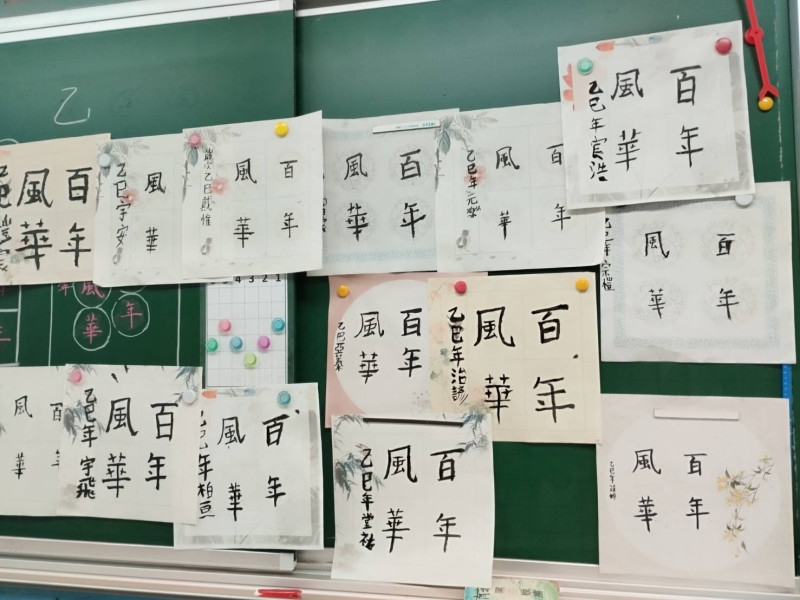 乙
百年
風華
乙巳
風華
乙巳宇安
百年
風華
歲次乙巳
百年
風華
百年
風華
乙巳年元樂
百年
風華
乙巳年宸浩
百年
風華
乙巳年宗愷
4 3 2 1
年
風華
百年
風華
乙巳亞蓁
百年
風華
乙巳年治諺
風華
百年
風華
乙巳年宇飛
百年
風華
乙巳年柏亘
百年
風華
乙巳年堂祐
百年
風華
乙巳年